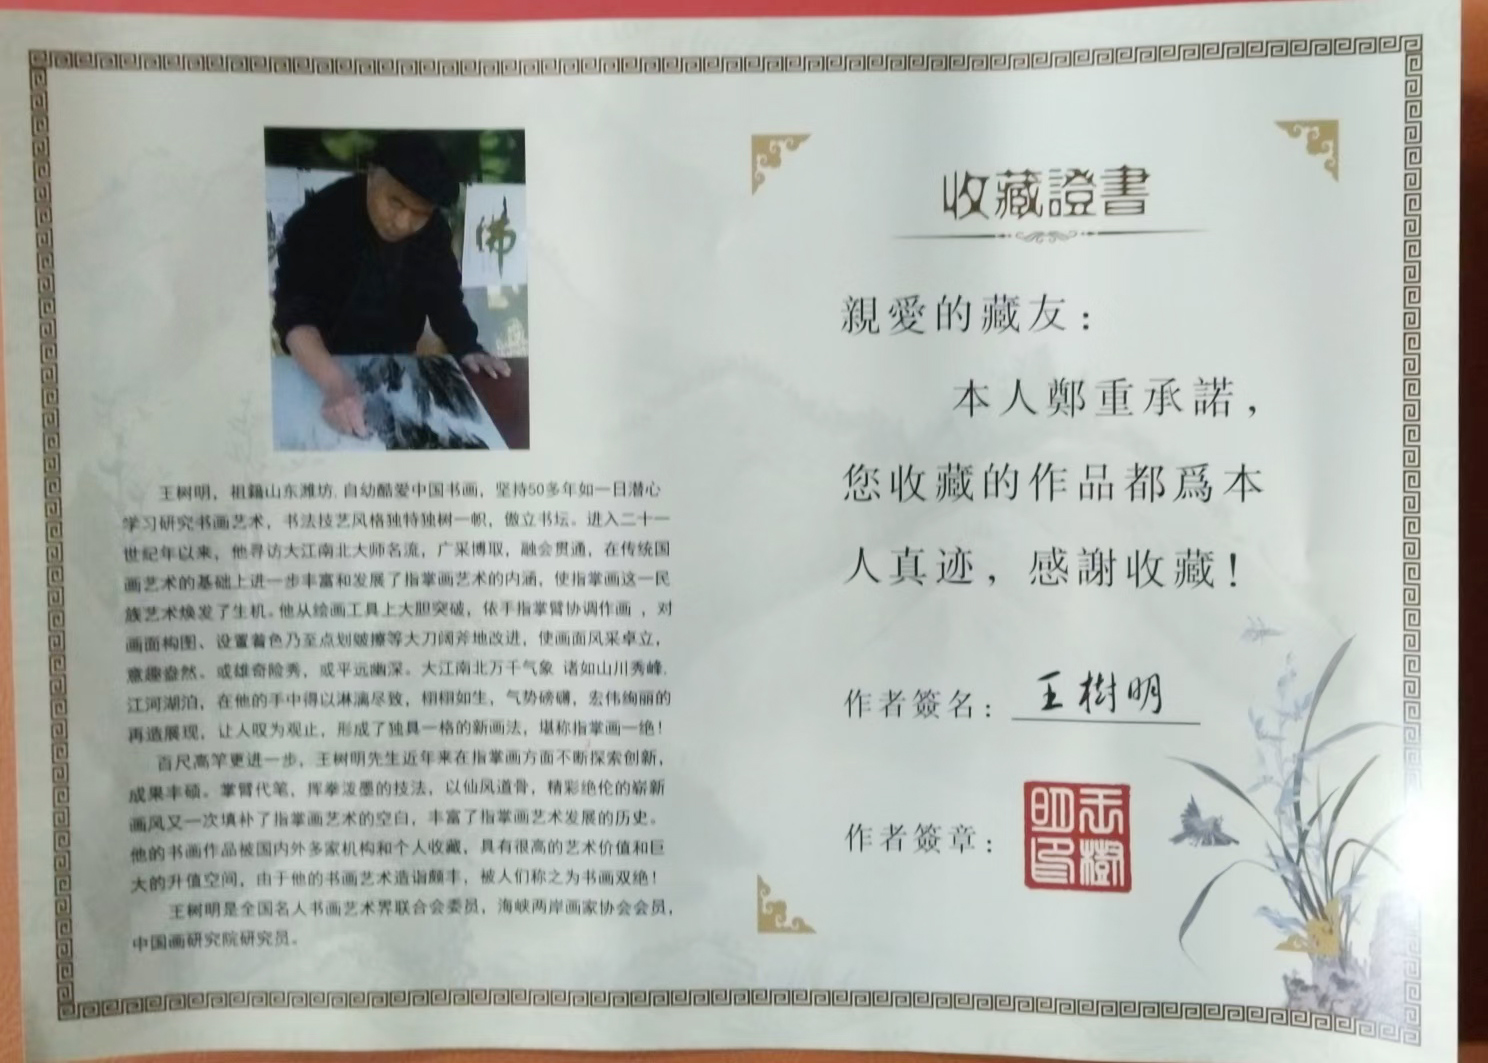 佛
王树明，祖籍山东潍坊，自幼酷爱中国书画，坚持50多年如一日潜心
学习研究书画艺术，书法技艺风格独特独树一帜，傲立书坛。进入二十一
世纪年以来，他寻访大江南北大师名流，广采博取，融会贯通，在传统国
画艺术的基础上进一步丰富和发展了指掌画艺术的内涵，使指掌画这一民
族艺术焕发了生机。他从绘画工具上大胆突破，依手指掌臂协调作画，对
画面构图、设置着色乃至点划皴擦等大刀阔斧地改进，使画面风采卓立，
意趣盎然。或雄奇险秀，或平远幽深。大江南北万千气象 诸如山川秀峰，
江河湖泊，在他的手中得以淋漓尽致，栩栩如生，气势磅礴，宏伟绚丽的
再造展现，让人叹为观止，形成了独具一格的新画法，堪称指掌画一绝！
百尺高竿更进一步，王树明先生近年来在指掌画方面不断探索创新，
成果丰硕。掌臂代笔，挥拳泼墨的技法，以仙风道骨，精彩绝伦的崭新
画风又一次填补了指掌画艺术的空白，丰富了指掌画艺术发展的历史。
他的书画作品被国内外多家机构和个人收藏，具有很高的艺术价值和巨
大的升值空间，由于他的书画艺术造诣颇丰，被人们称之为书画双绝！
王树明是全国名人书画艺术界联合会委员，海峡两岸画家协会会员，
中国画研究院研究员。
收藏證書
親愛的藏友：
本人鄭重承諾，
您收藏的作品都爲本
人真迹，感謝收藏！
作者簽名：王樹明
作者簽章：王樹明印